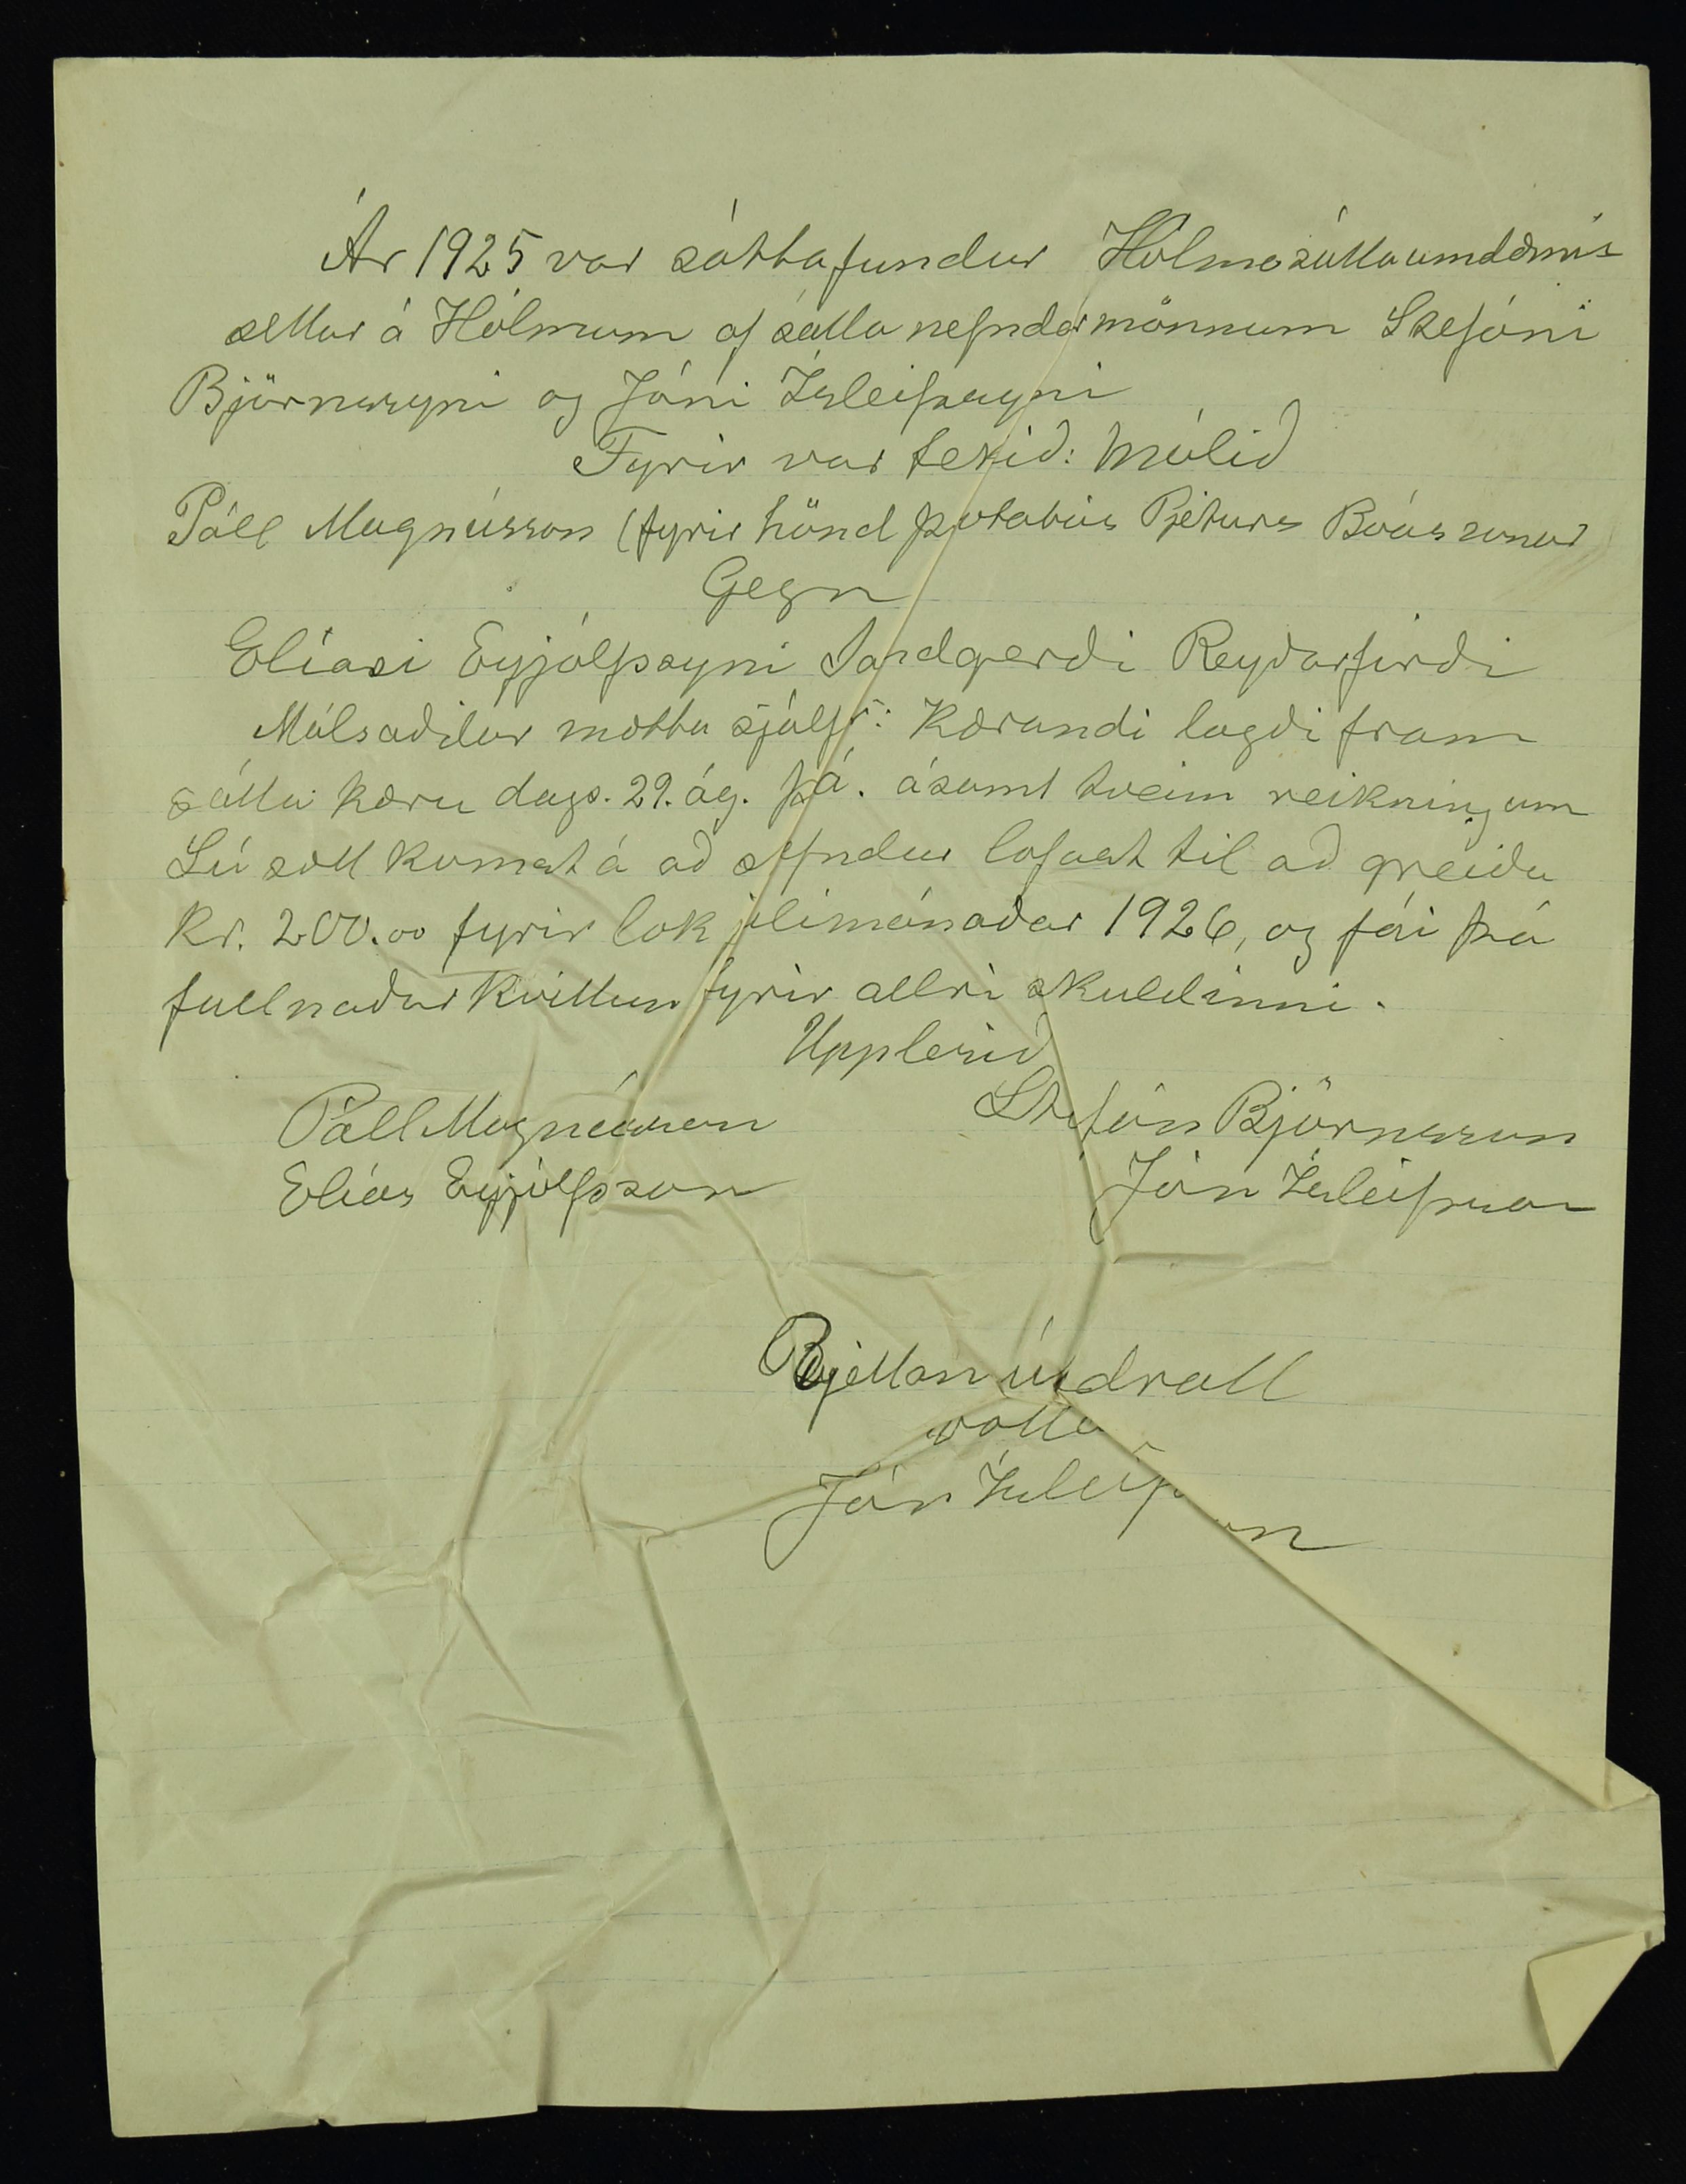 Ár 1925 var sáttafundur Hólmasáttaumdæmis
settur á Hólmum af sáttanefndarmönnum Stefáni
Björnssyni og Jóni Ísleifssyni
Fyrir var tekið: Málið
Páll Magnússon (fyrir hönd þrotabús Pjeturs Bóassonar
Gegn
Elíasi Eyjólfssyni Sandgerði Reyðarfirði
Málsaðilar mættu sjálfir: Kærandi lagði fram
sátta kæru dags. 29. ág. þ.á. ásamt tveim reikningum
Sú sátt komst á að stefndur lofast til að greiða
Kr. 200.00 fyrir lok júlimánaðar 1926, og fái þá
fullnaðarkvittun fyrir allri skuldinni.
Upplesið
Páll Magnússon Stefán Björnsson
Elías Eyjólfsson Jón Ísleifsson
Rjettan útdrátt
vottar
Jón Ísleifsson